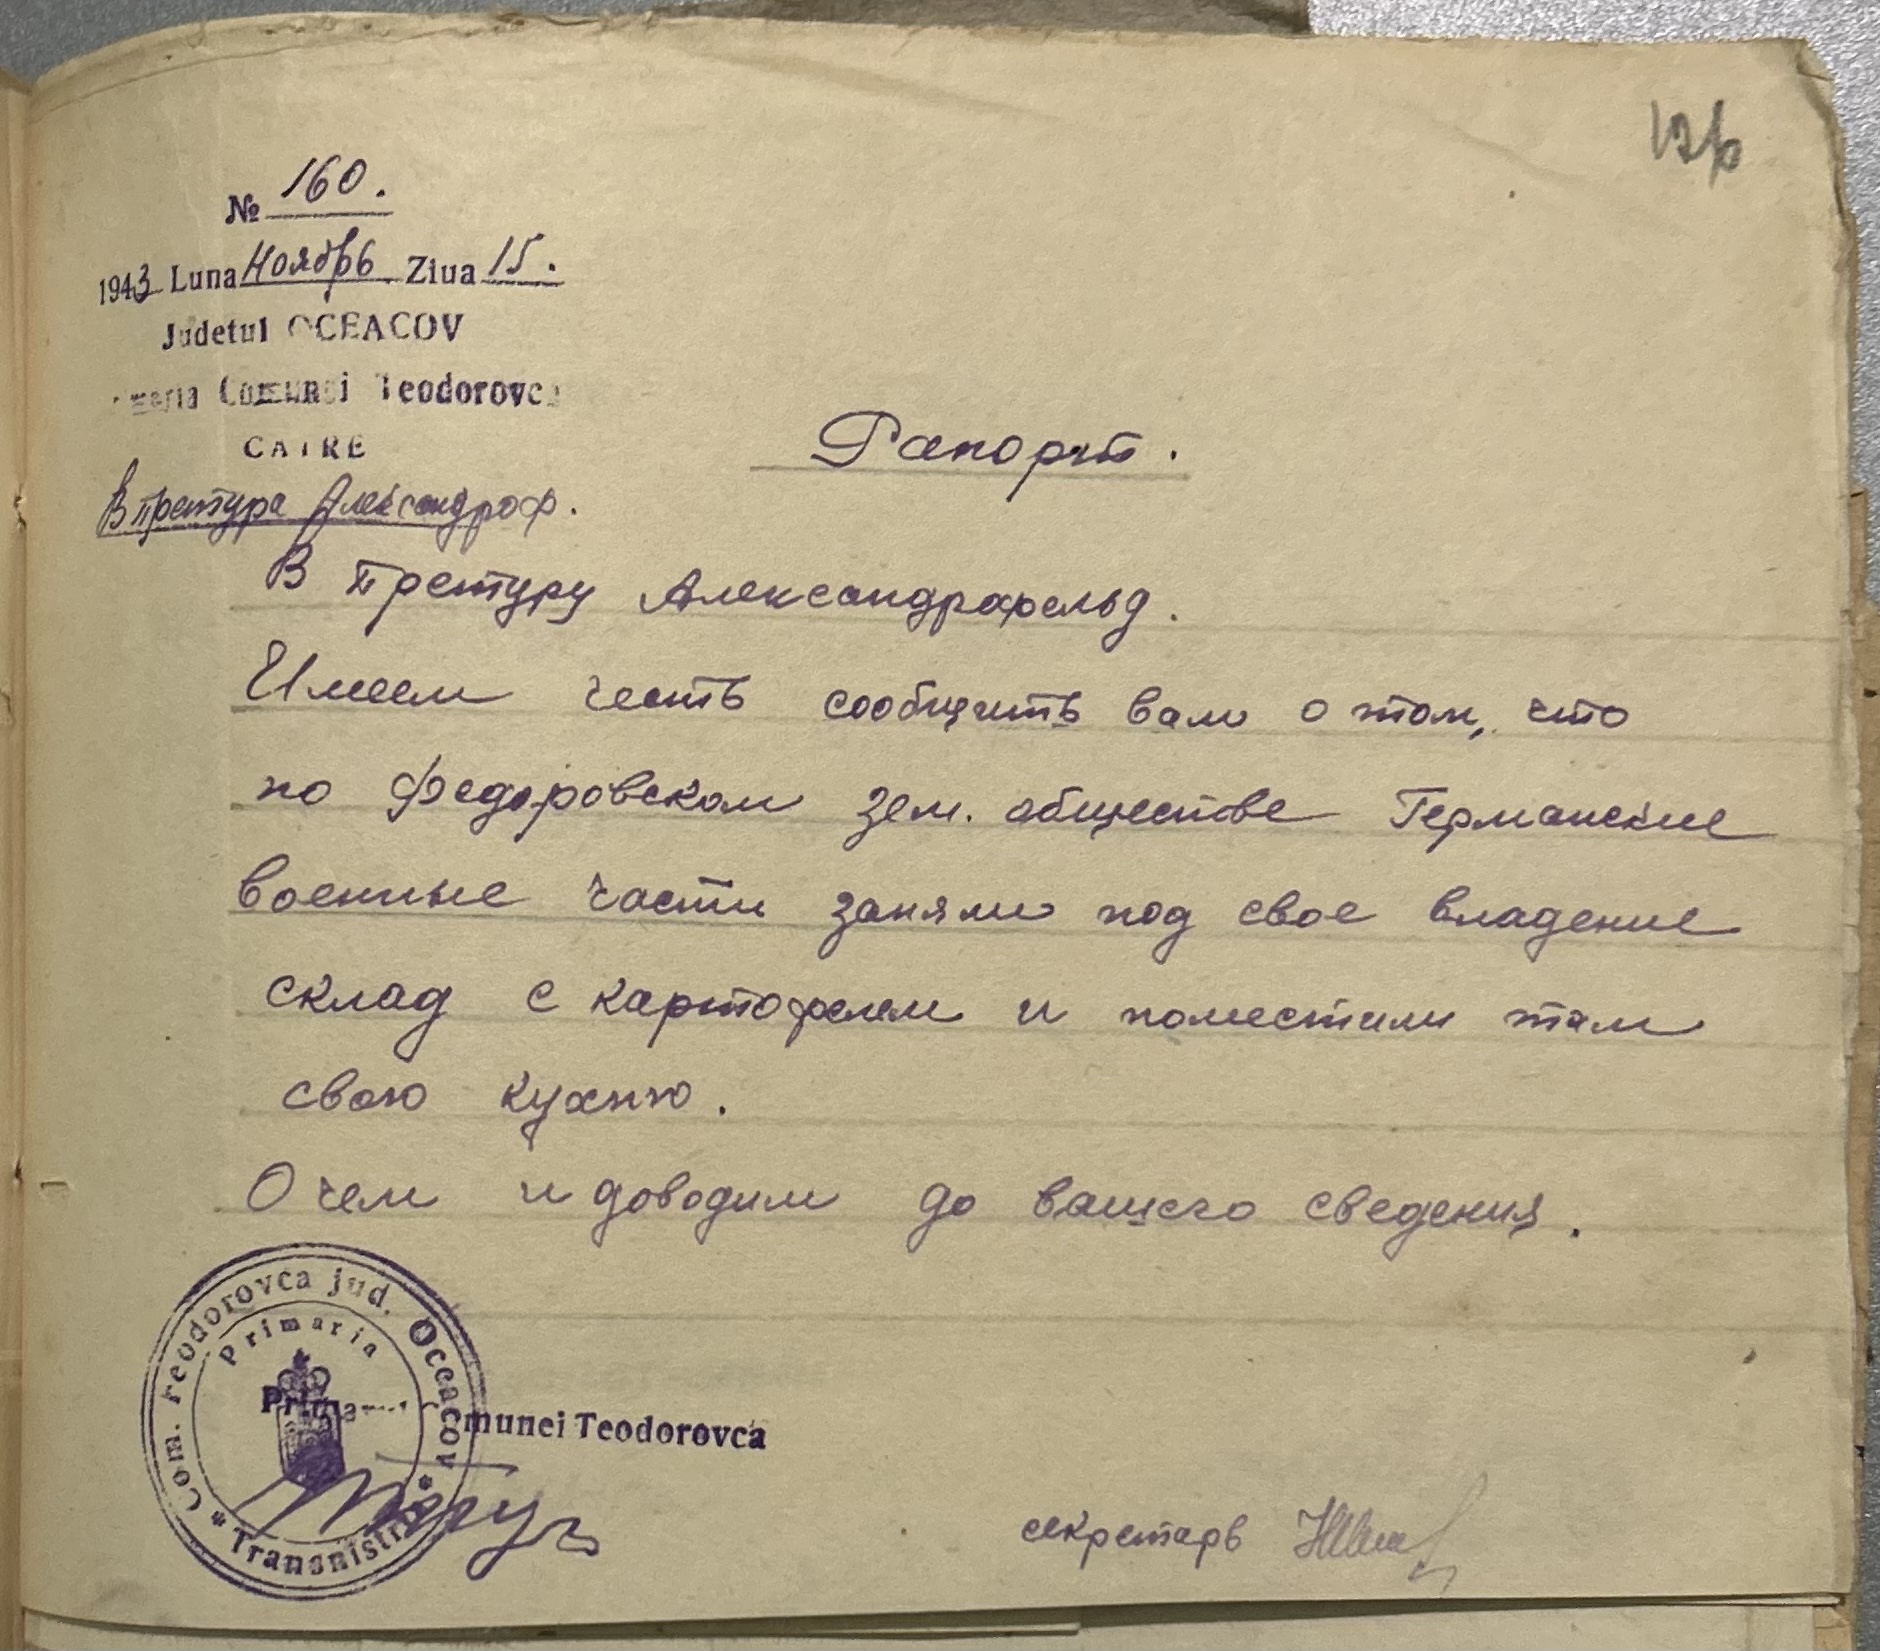 126
№ 160.
1943 Luna Ноябрь Ziua 15.
Judetul OCEACOV
Primaria Comunei Teodorovca
CATRE
В претура Александроф.
Рапорт.
В претуру Александрофельд.
Имеем честь сообщить вам о том, что
по Федоровском зем. обществе Германские
военные части заняли под свое владение
склад с картофелем и поместили там
свою кухню.
О чем и доводим до вашего сведения.
Com. Teodorovca jud. Oceacov
* Transnistria *
Primaria
Primaria Comunei Teodorovca
секретарь